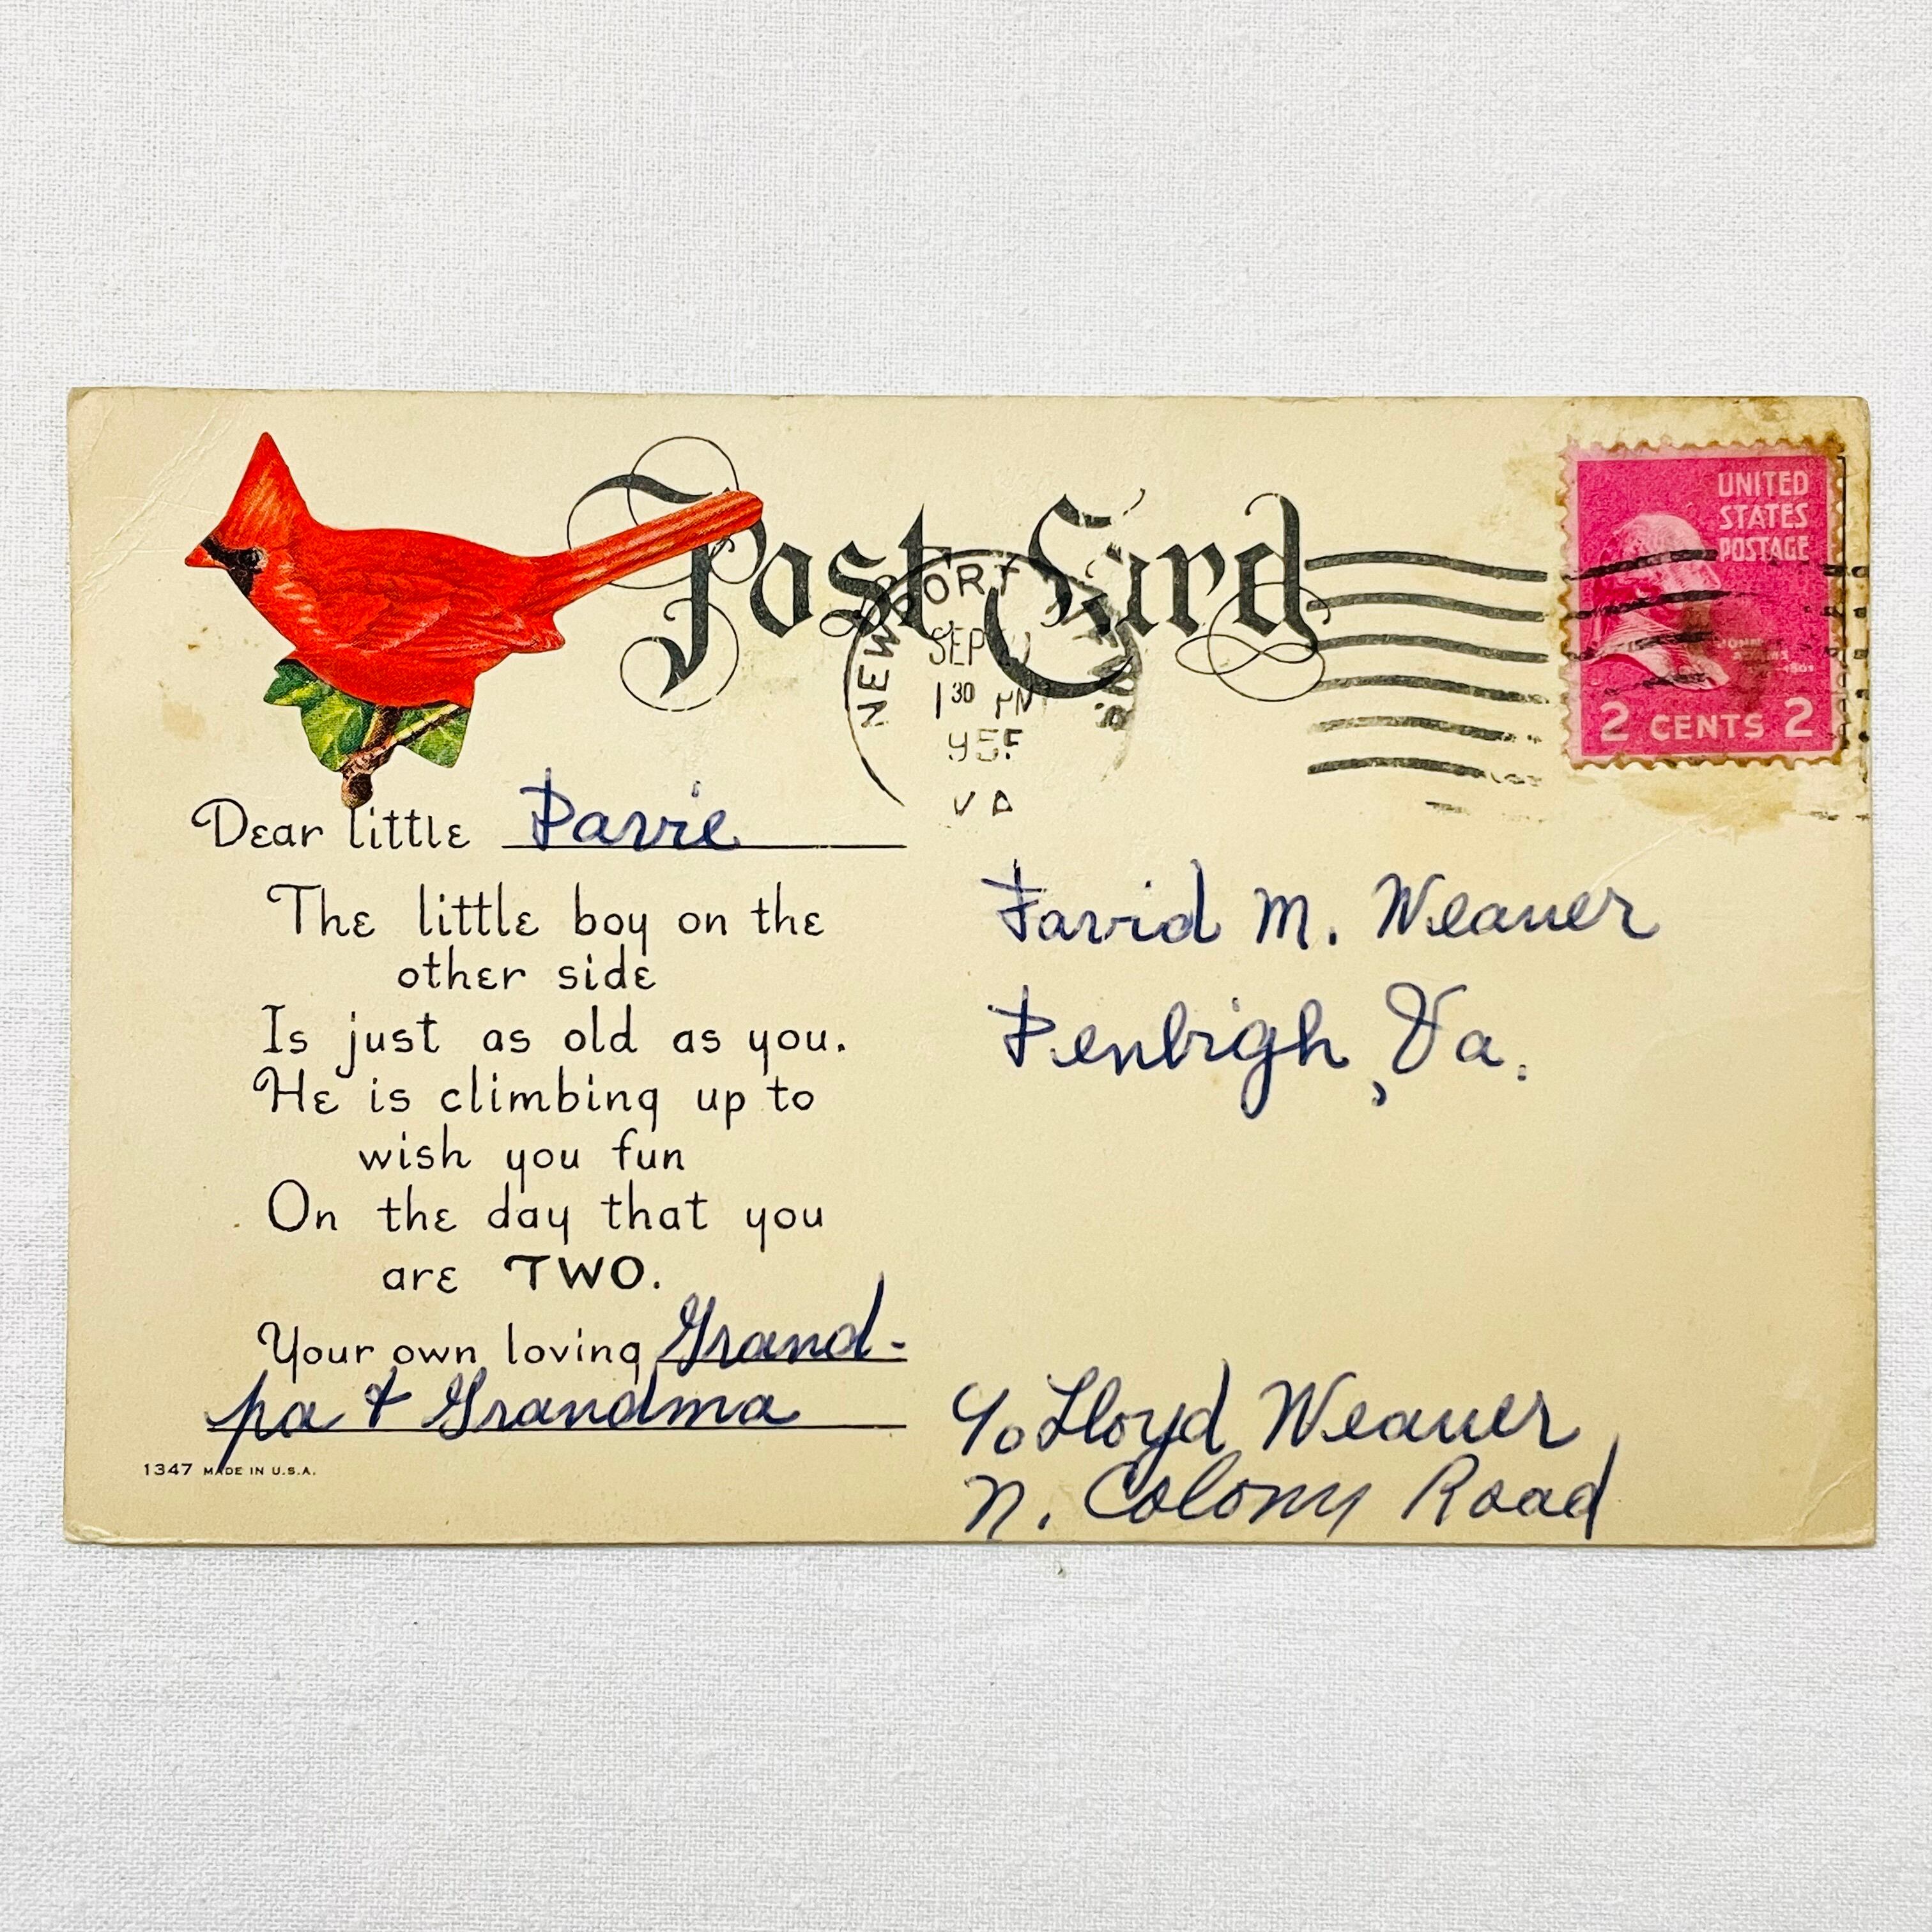 Post Card
NEWPORT
SEP
1 30 PM
VA
UNITED
STATES
POSTAGE
2 CENTS 2
Dear little Davie
The little boy on the
other side
Is just as old as you.
He is climbing up to
wish you fun
On the day that you
are TWO.
Your own loving Grand-
pa & Grandma
1347 MADE IN U.S.A.
David M. Weaver
Denbigh, Va.
c/o Lloyd Weaver
N. Colony Road